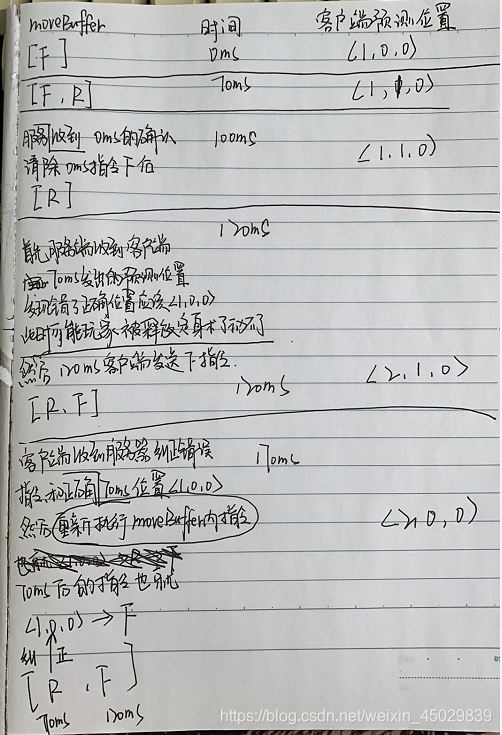 moveBuffer 时间 客户端预测位置
[F] 0ms (1,0,0)
[F,R] 70ms (1,1,0)
服务收到 0ms的确认 100ms
清除0ms指令下后 (1,1,0)
[R]
120ms
首先服务端收到客户端
70ms发出的预测位置
发现错了正确位置应该(1,0,0)
此时可能玩家被释放定身术了动不了
然后 120ms客户端发送下指令
[R,F] 120ms (2,1,0)
客户端收到服务器纠正错误 170ms
指令和正确70ms位置(1,0,0)
然后重新执行moveBuffer内指令 (2,0,0)
70ms后的指令也就
(1,0,0) → F
纠正
[R,F]
70ms 120ms
https://blog.csdn.net/weixin_45029839